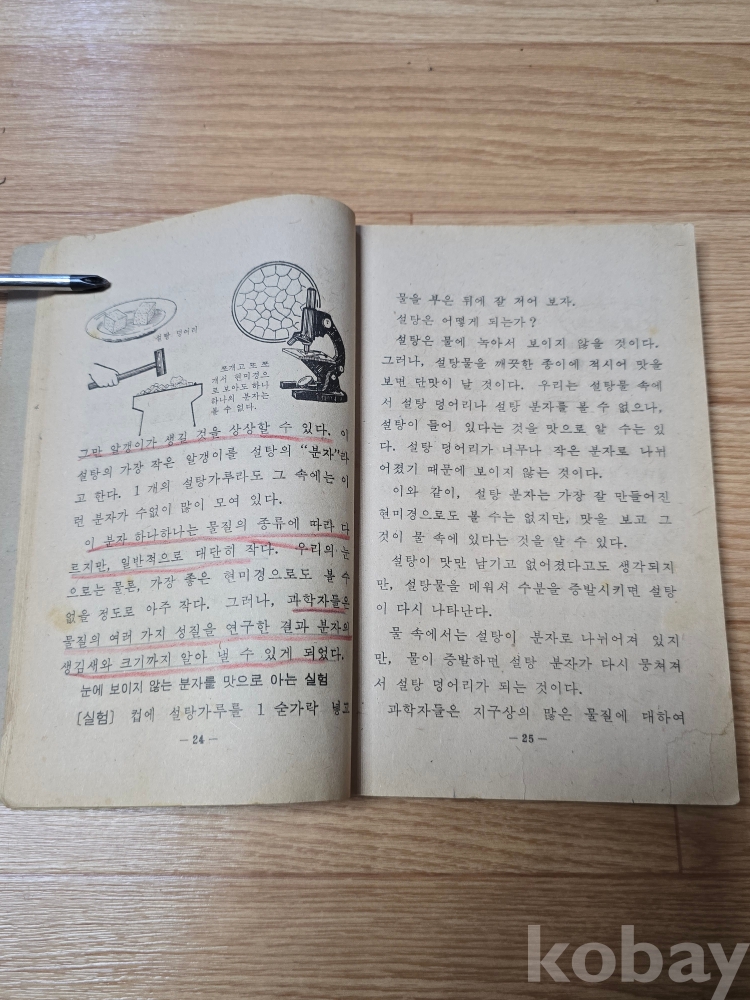 설탕 덩어리
쪼개고 또 쪼
개서 현미경으
로 보아도 하나
하나의 분자는
볼 수 없다.
그만 알갱이가 생길 것을 상상할 수 있다. 이
설탕의 가장 작은 알갱이를 설탕의 “분자”라
고 한다. 1 개의 설탕가루라도 그 속에는 이
런 분자가 수없이 많이 모여 있다.
이 분자 하나하나는 물질의 종류에 따라 다
르지만, 일반적으로 대단히 작다. 우리의 눈
으로는 물론, 가장 좋은 현미경으로도 볼 수
없을 정도로 아주 작다. 그러나, 과학자들은
물질의 여러 가지 성질을 연구한 결과 분자의
생김새와 크기까지 알아 낼 수 있게 되었다.
눈에 보이지 않는 분자를 맛으로 아는 실험
[실험] 컵에 설탕가루를 1 숟가락 넣고
— 24 —
물을 부은 뒤에 잘 저어 보자.
설탕은 어떻게 되는가?
설탕은 물에 녹아서 보이지 않을 것이다.
그러나, 설탕물을 깨끗한 종이에 적시어 맛을
보면 단맛이 날 것이다. 우리는 설탕물 속에
서 설탕 덩어리나 설탕 분자를 볼 수 없으나,
설탕이 들어 있다는 것을 맛으로 알 수는 있
다. 설탕 덩어리가 너무나 작은 분자로 나뉘
어졌기 때문에 보이지 않는 것이다.
이와 같이, 설탕 분자는 가장 잘 만들어진
현미경으로도 볼 수는 없지만, 맛을 보고 그
것이 물 속에 있다는 것을 알 수 있다.
설탕이 맛만 남기고 없어졌다고도 생각되지
만, 설탕물을 데워서 수분을 증발시키면 설탕
이 다시 나타난다.
물 속에서는 설탕이 분자로 나뉘어져 있지
만, 물이 증발하면 설탕 분자가 다시 뭉쳐져
서 설탕 덩어리가 되는 것이다.
과학자들은 지구상의 많은 물질에 대하여
— 25 —
kobay